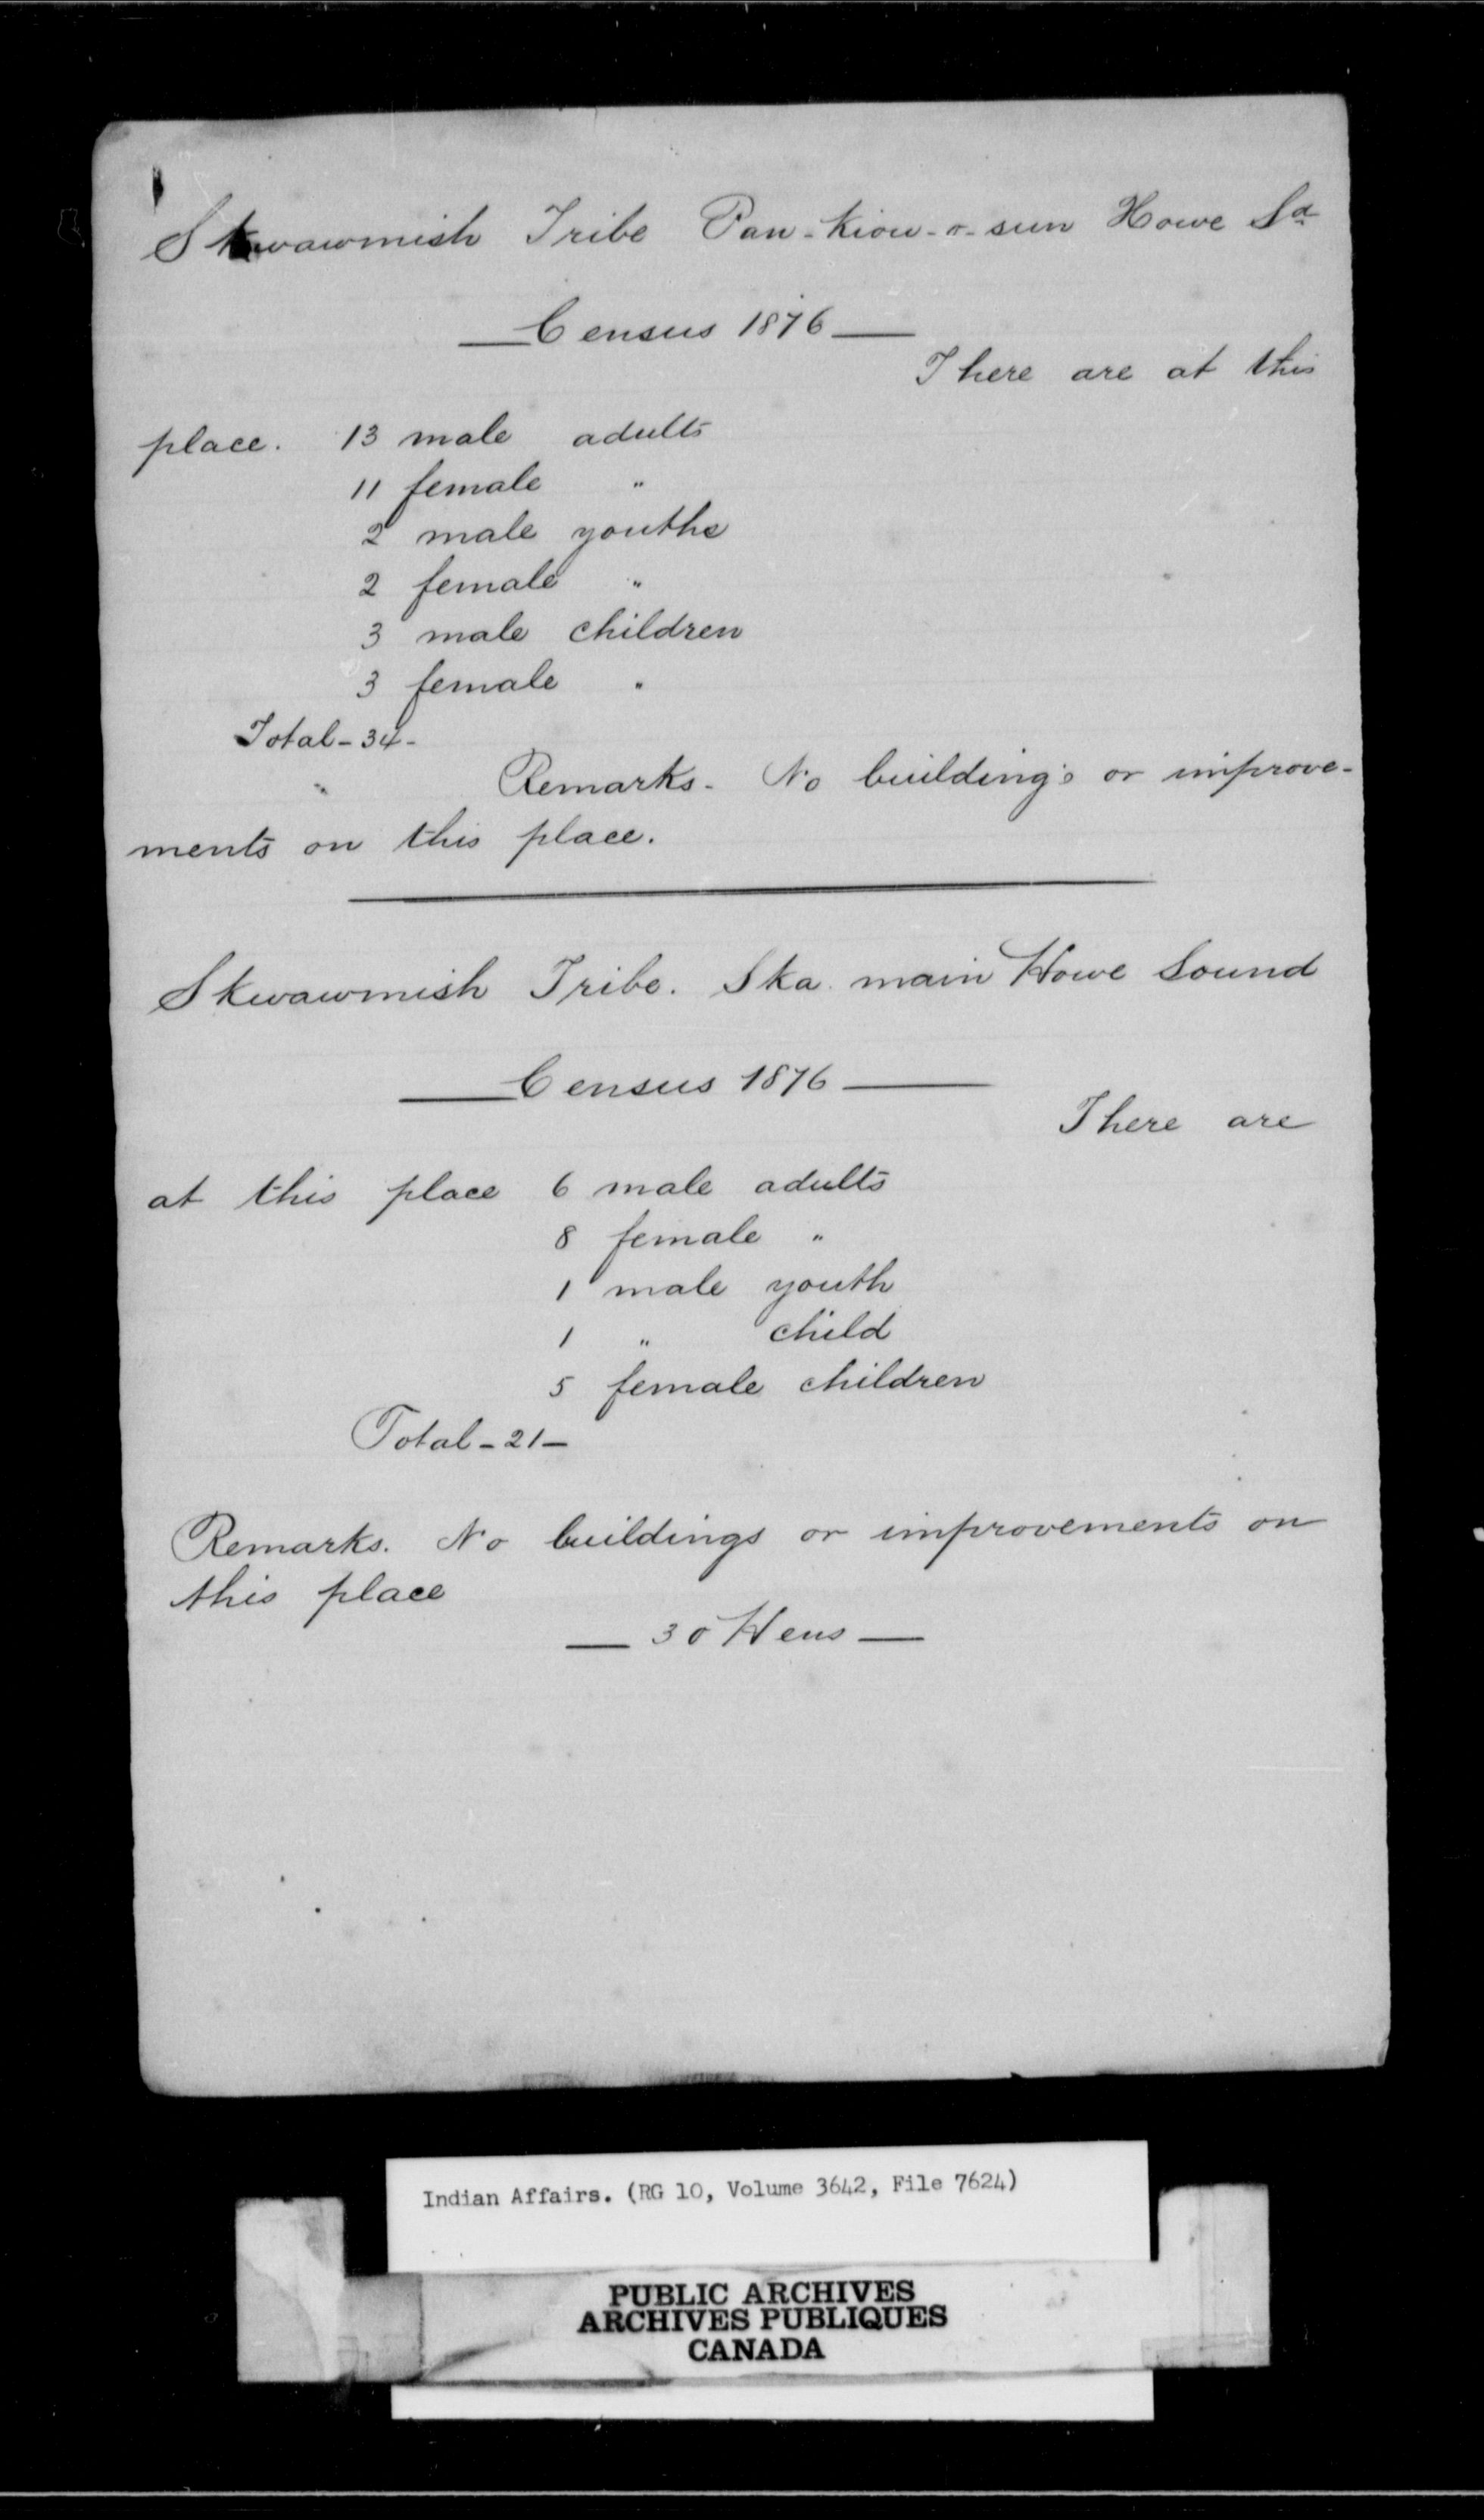 Skwawmish Tribe Pan-Kiow-o-sun Howe Sd
Census 1876
There are at this
place. 13 male adults
11 female "
2 male youths
2 female "
3 male children
3 female "
Total - 34 -
Remarks - No buildings or improve-
ments on this place.
Skwawmish Tribe. Ska main Howe Sound
Census 1876
There are
at this place 6 male adults
8 female "
1 male youth
1 " child
5 female children
Total - 21 -
Remarks. No buildings or improvements on
this place
— 30 Hens —
Indian Affairs. (RG 10, Volume 3642, File 7624)
PUBLIC ARCHIVES
ARCHIVES PUBLIQUES
CANADA